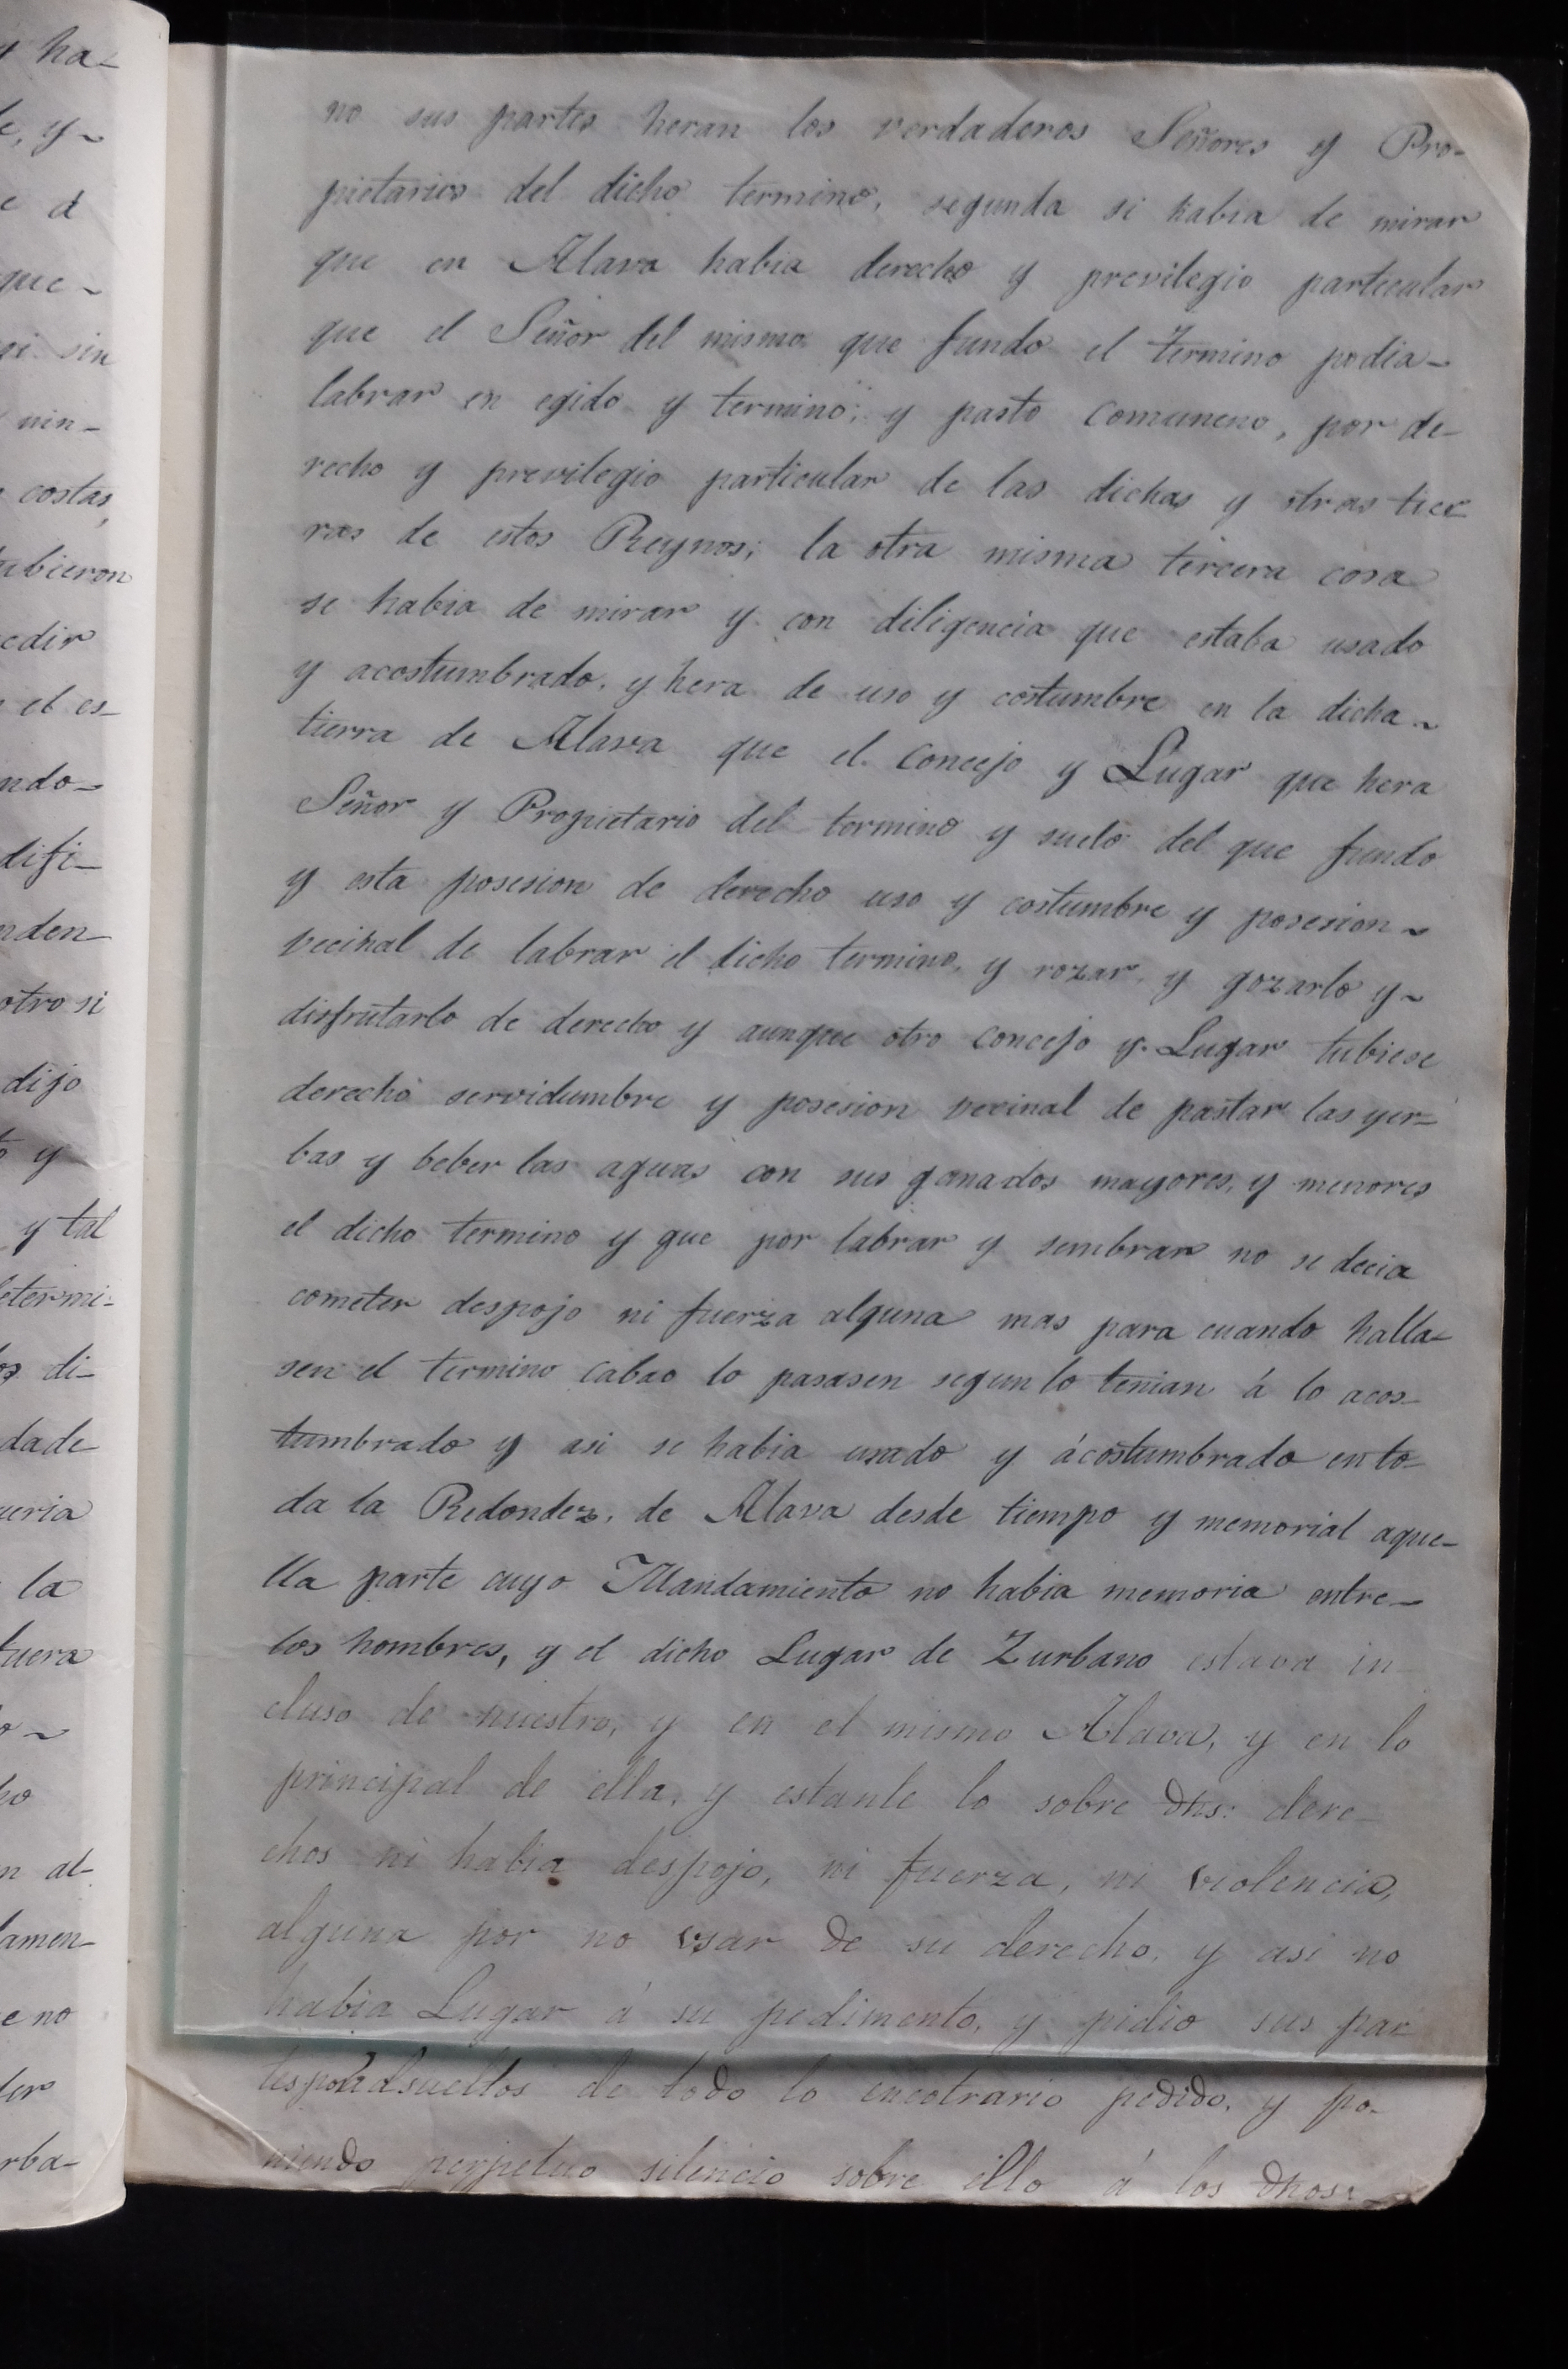 no sus partes heran los verdaderos Señores y Pro-
pietarios del dicho termino, segunda si habia de mirar
que en Alava habia derecho y previlegio particular
que el Señor del mismo que fundo el termino podia-
labrar en egido y termino; y pasto comunero, por de-
recho y previlegio particular de las dichas y otras tier
ras de estos Reynos; la otra misma tercera cosa
se habia de mirar y con diligencia que estaba usado
y acostumbrado, y hera de uso y costumbre en la dicha
tierra de Alava que el concejo y Lugar que hera
Señor y Propietario del termino y suelo del que fundo
y esta posesion de derecho uso y costumbre y posesion
vecinal de labrar el dicho termino, y rozar, y gozarlo y
disfrutarlo de derecho y aunque otro concejo y Lugar tubiese
derecho servidumbre y posesion vecinal de pastar las yer-
bas y beber las aguas con sus ganados mayores, y menores
el dicho termino y que por labrar y sembrar no se decia
cometer despojo ni fuerza alguna mas para cuando halla-
sen el termino cabao lo pasasen segun lo tenian á lo acos-
tumbrado y asi se habia usado y ácostumbrado en to-
da la Redondez, de Alava desde tiempo y memorial aque-
lla parte cuyo Mandamiento no habia memoria entre-
los hombres, y el dicho Lugar de Zurbano estava in-
cluso de nuestro, y en el mismo Alava, y en lo
principal de ella, y estante lo sobre dhs: dere-
chos ni habia despojo, ni fuerza, ni violencia,
alguna por no vsar de su derecho, y asi no
habia Lugar á su pedimento, y pidio sus par
de todo lo encotrario pedido, y po-
niendo perpetuo silencio sobre ello á los dhos:
y ha-
e, y
e d
que
sin
nin-
costas,
ubieron
edir
el es-
ndo-
difi-
nden
otro si
dijo
y
y tal
etermi-
os di-
dade
ueria
la
fuera
o
ho
n al-
lamen-
e no
der
rba-